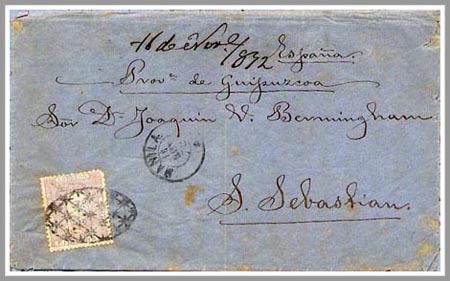 16 de Nov.e/872
España
Prov.a de Guipuzcoa
Sor Dn Joaquin V. Bermingham
MANILA
S. Sebastian.